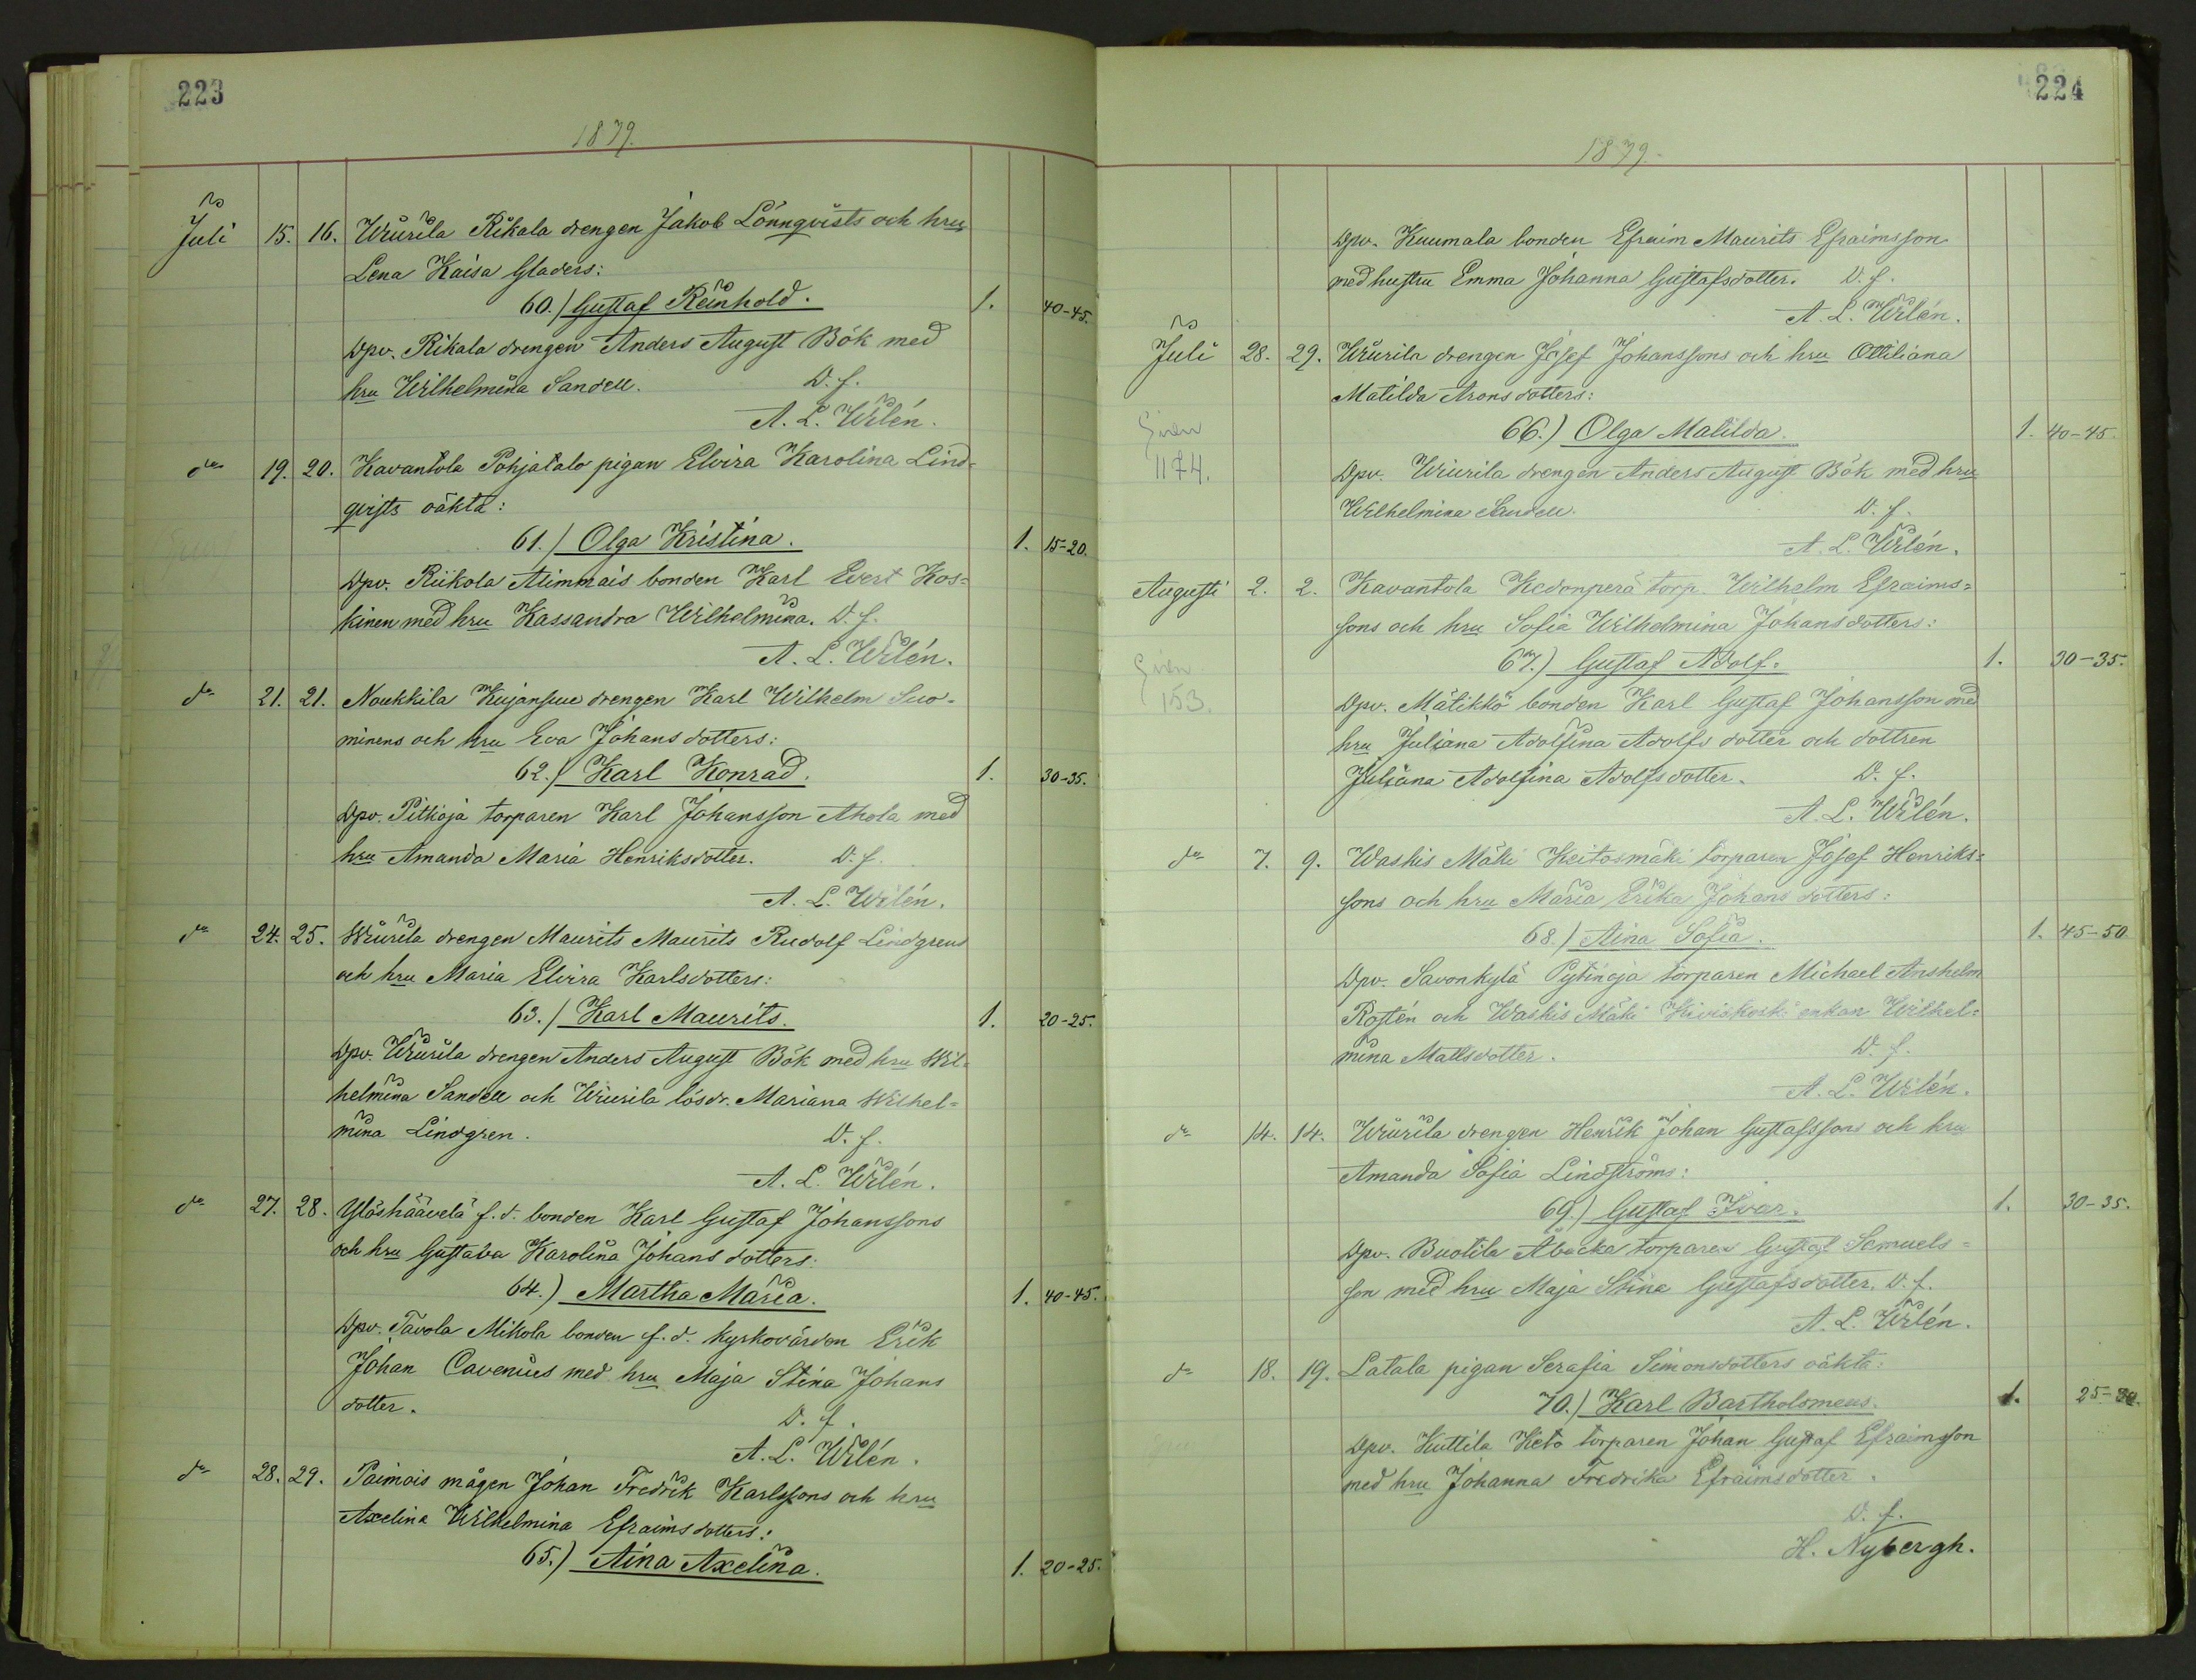 223
1879.
Juli 15. 16. Wiurila Rikala drengen Jakob Lönnqvists och hru
Lena Kaisa Gladers:
60.) Gustaf Reinhold. 1. 40-45.
Dpv. Rikala drengen Anders August Bök med
hru Wilhelmina Sandell. D. f.
A. L. Wilén.
do 19. 20. Kavantola Pohjatalo pigan Elvira Karolina Lind-
qvists oäkta:
61.) Olga Kristina. 1. 15-20.
Dpv. Riikola Alimmais bonden Karl Evert Kos-
kinen med hru Kassandra Wilhelmina. D. f.
A. L. Wilén.
do 21. 21. Noukkila Kujansuu drengen Karl Wilhelm Suo-
minens och hru Eva Johansdotters:
62.) Karl Konrad. 1. 30-35.
Dpv. Pitkoja torparen Karl Johansson Ahola med
hru Amanda Maria Henriksdotter. D. f.
A. L. Wilén.
do 24. 25. Wiurila drengen Maurits Maurits Rudolf Lindgrens
och hru Maria Elvira Karlsdotters:
63.) Karl Maurits. 1. 20-25.
Dpv. Wiurila drengen Anders August Bök med hru Wil-
helmina Sandell och Wiurila lösdr. Mariana Wilhel-
mina Lindgren. D. f.
A. L. Wilén.
do 27. 28. Ylöshäävelä f.d. bonden Karl Gustaf Johanssons
och hru Gustava Karolina Johans dotters:
64.) Martha Maria. 1. 40-45.
Dpv. Tavola Mikola bonden f.d. kyrkovärden Erik
Johan Cavenius med hru Maja Stina Johans
dotter. D. f.
A. L. Wilén.
do 28. 29. Paimais mågen Johan Fredrik Karlssons och hru
Axelina Wilhelmina Efraimsdotters:
65.) Aina Axelina. 1. 20-25.
224
1879.
Dpv. Kuumala bonden Efraim Maurits Efraimsson
med hustru Emma Johanna Gustafsdotter. D. f.
A. L. Wilén.
Juli 28. 29. Wiurila drengen Josef Johanssons och hru Ottiliana
Matilda Aronsdotters:
66.) Olga Matilda. 1. 40-45.
1174. Dpv. Wiurila drengen Anders August Bök med hru
Wilhelmina Sandell. D. f.
A. L. Wilén.
Augusti 2. 2. Kavantola Kedonperä torp. Wilhelm Efraims-
sons och hru Sofia Wilhelmina Johansdotters:
67.) Gustaf Adolf. 1. 30-35.
153. Dpv. Mätikkö bonden Karl Gustaf Johansson med
hru Juliana Adolfina Adolfs dotter och dottren
Juliana Adolfina Adolfsdotter. D. f.
A. L. Wilén.
do 7. 9. Waskis Mäki Keitosmäki torparen Josef Henriks-
sons och hru Maria Erika Johans dotters:
68.) Aina Sofia. 1. 45-50
Dpv. Savonkylä Pytinoja torparen Michael Anshelm
Rostén och Waskis Mäki Kiviskoski enkan Wilhel-
mina Mattsdotter. D. f.
A. L. Wilén.
do 14. 14. Wiurila drengen Henrik Johan Gustafssons och hru
Amanda Sofia Lindströms:
69.) Gustaf Ivar. 1. 30-35.
Dpv. Buotila Abacka torparen Gustaf Samuels-
son med hru Maja Stina Gustafsdotter. D. f.
A. L. Wilén.
do 18. 19. Latala pigan Serafia Simonsdotters oäkta:
70.) Karl Bartholomeus. 1. 25-30.
Dpv. Kuttila Keto torparen Johan Gustaf Efraimsson
med hru Johanna Fredrika Efraimsdotter.
D. f.
H. Nybergh.